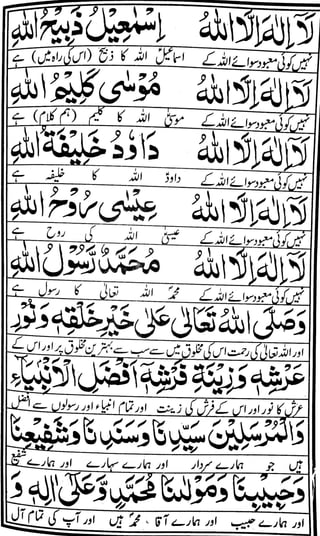 لَا اِلٰهَ اِلَّا اللهُ اِسْمٰعِيْلُ ذَبِيْحُ اللهِ
نہیں کوئی معبود سوائے اللہ کے اسماعیلؑ اللہ کا ذبیح (اس کی راہ میں) ہے
لَا اِلٰهَ اِلَّا اللهُ مُوْسٰى كَلِيْمُ اللهِ
نہیں کوئی معبود سوائے اللہ کے موسیٰؑ اللہ کا کلیم (ہم کلام) ہے
لَا اِلٰهَ اِلَّا اللهُ دَاودُ خَلِيْفَةُ اللهِ
نہیں کوئی معبود سوائے اللہ کے داودؑ اللہ کا خلیفہ ہے
لَا اِلٰهَ اِلَّا اللهُ عِيْسٰى رُوْحُ اللهِ
نہیں کوئی معبود سوائے اللہ کے عیسیٰ اللہ کی روح ہے
لَا اِلٰهَ اِلَّا اللهُ مُحَمَّدٌ رَّسُوْلُ اللهِ
نہیں کوئی معبود سوائے اللہ کے محمدؐ اللہ تعالیٰ کا رسول ہے
وَصَلَّى اللهُ تَعَالٰى عَلٰى خَيْرِ خَلْقِهٖ وَنُوْرِ
اور اللہ تعالیٰ کی رحمت اس کی مخلوق میں سے سب سے بہترین مخلوق پر اور اس کے
عَرْشِهٖ وَزِيْنَةِ فَرْشِهٖ اَفْضَلِ الْاَنْبِيَاءِ
عرش کا نور اور اس کے فرش کی زینت اور تمام انبیاء اور رسولوں سے افضل
وَالْمُرْسَلِيْنَ سَيِّدِنَا وَسَنَدِنَا وَشَفِيْعِنَا
ہیں جو ہمارے سردار اور ہمارے سہارے اور ہمارے شفیع
وَحَبِيْبِنَا وَمَوْلٰىنَا مُحَمَّدٍ وَّعَلٰى اٰلِهٖ وَ
اور ہمارے حبیب اور ہمارے آقا، محمدؐ ہیں اور آپ کی تمام آل